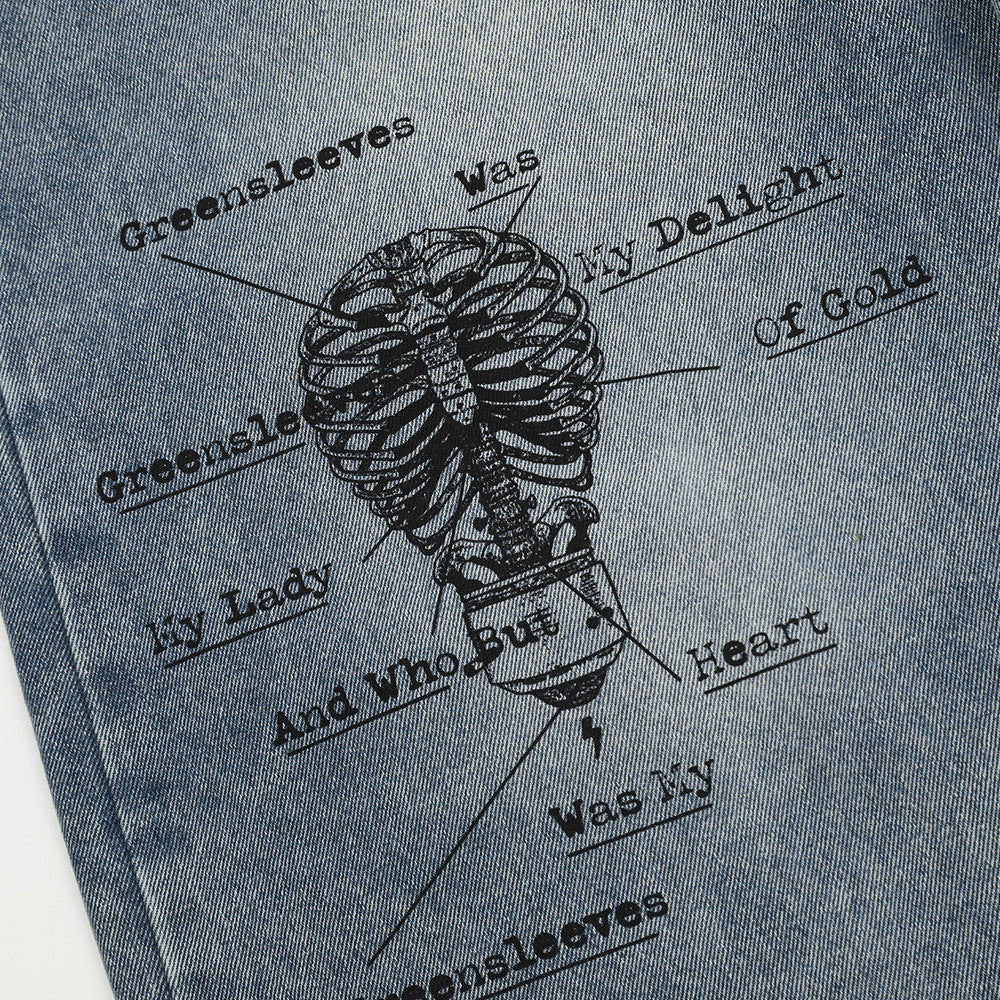 Greensleeves
Was
My Delight
Of Gold
Greensleeves
My Lady
And Who But
Heart
Was My
Greensleeves